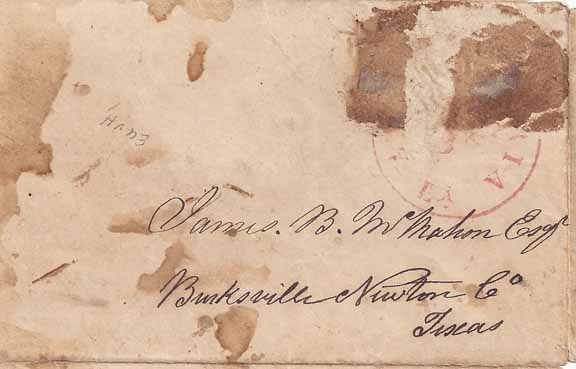 Have
James. B. McMahon Esqr
Burksville Newton Co
Texas